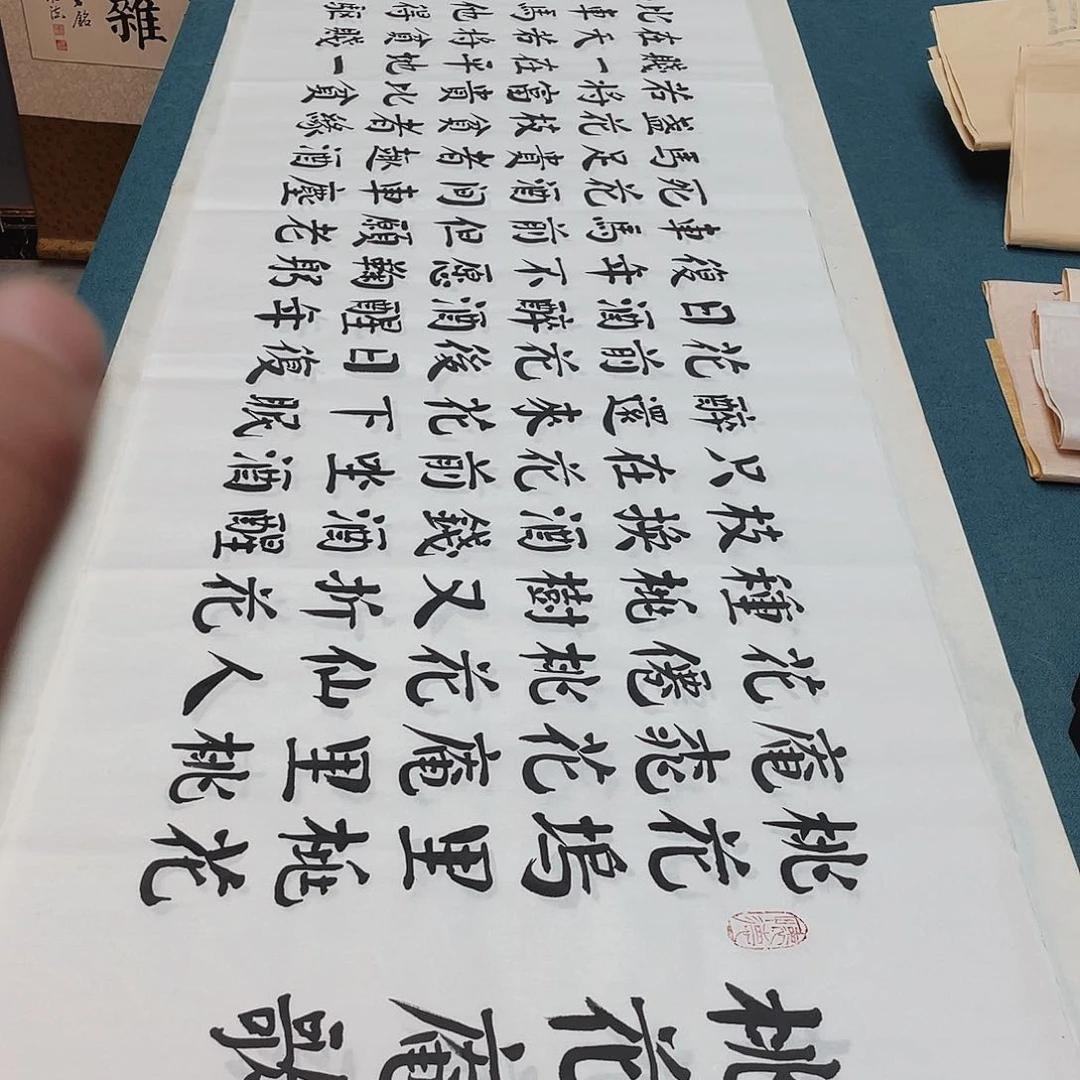 桃花庵歌
桃花塢里桃花
庵桃花庵里桃
花僊桃花仙人
種桃樹又折花
枝換酒錢酒醒
只在花前坐酒
醉還來花下眠
花前花後日復
日酒醉酒醒年
復年不愿鞠躬
車馬前但願老
死花酒間車塵
馬足貴者趣酒
盞花枝貧者緣
若將富貴比貧
賤一在平地一
在天若將貧賤
比車馬他得驅
雜
銘